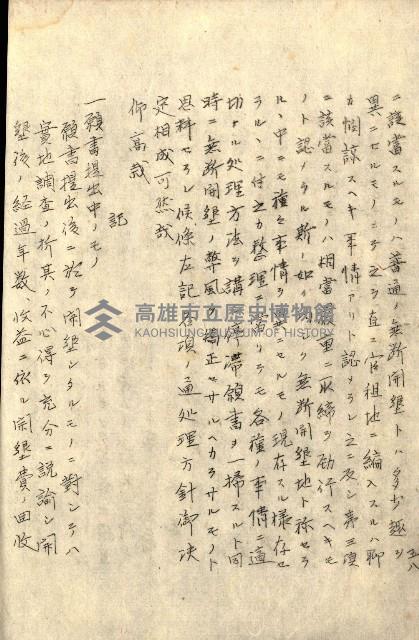 五八
ニ該當スルモノハ普通ノ無断開墾トハ多少趣ヲ
異ニセルモノニシテ之ヲ直ニ官祖地ニ編入スルハ聊
カ惻諒スヘキ事情アリト認メラレ之ニ反シ第三項
ニ該當スルモノハ相當嚴重ニ取締ヲ勵行スヘキモ
ノト認メラル斯ノ如ク 無断開墾地ト称セラ
ルヽ中ニモ種々事情ヲ セルモノ現存スル様存セ
ラルヽニ付之カ整理ニ當リテモ各種ノ事情ニ適
切ナル処理方法ヲ講 滞領書ヲ一掃スルト同
時ニ無断開墾ノ弊風 矯正セサルヘカラサルモノト
思料セラレ候條左記 項ノ通処理方針御決
定相成可然哉
仰高裁
記
一願書提出中ノモノ
願書提出後ニ於テ開墾シタルモノニ對シテハ
實地調査ノ折其ノ不心得ヲ充分ニ説諭シ開
墾後ノ経過年数、收益ニ依ル開墾費ノ回收
高雄市立歷史博物館
KAOHSIUNG MUSEUM OF HISTORY